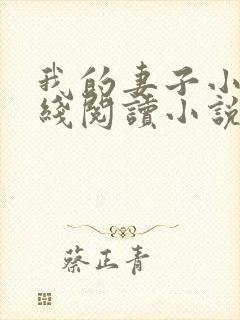 我的妻子小
綫閱讀小說
蔡正青